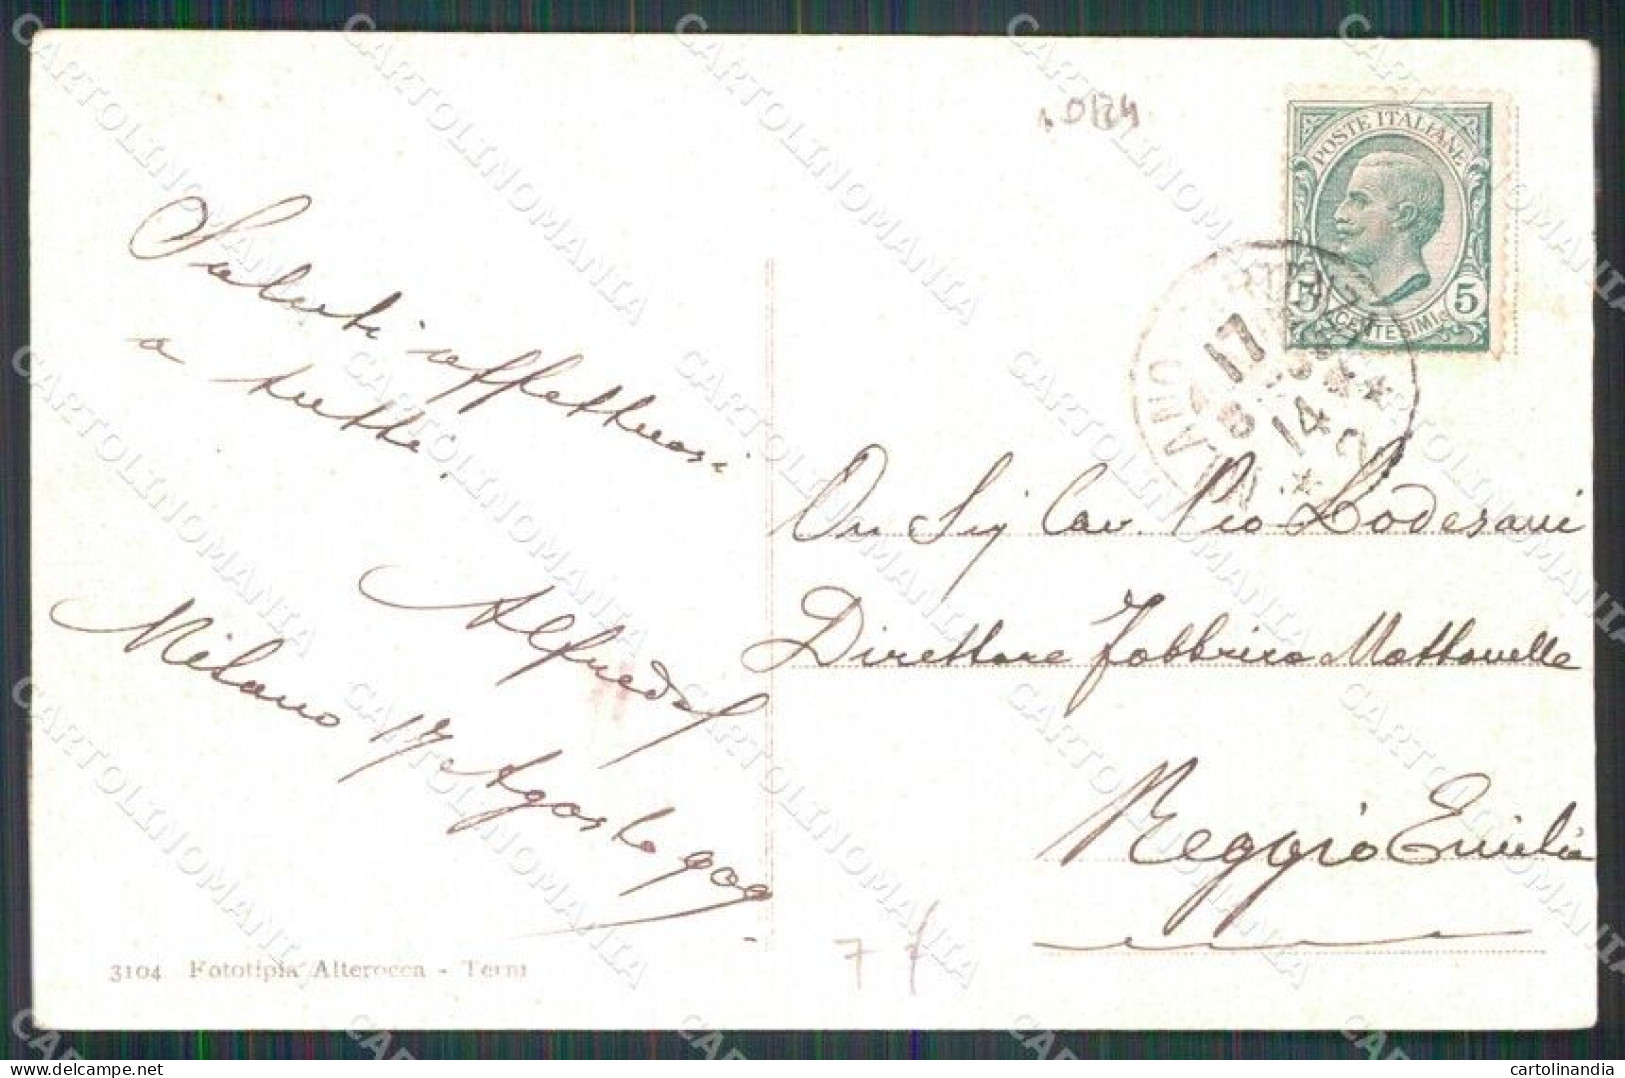 POSTE ITALIANE
5
CENTESIMI
5
17
14
Saluti affettuosi
a tutti.
Alfredo
Milano 17 Agosto 909
On Sig Cav. Pio Lodesani
Direttore Fabbrica Mattonelle
Reggio Emilia
3104 Fototipia Alterocca - Terni
7
CARTOLINOMANIA
cartolinandia